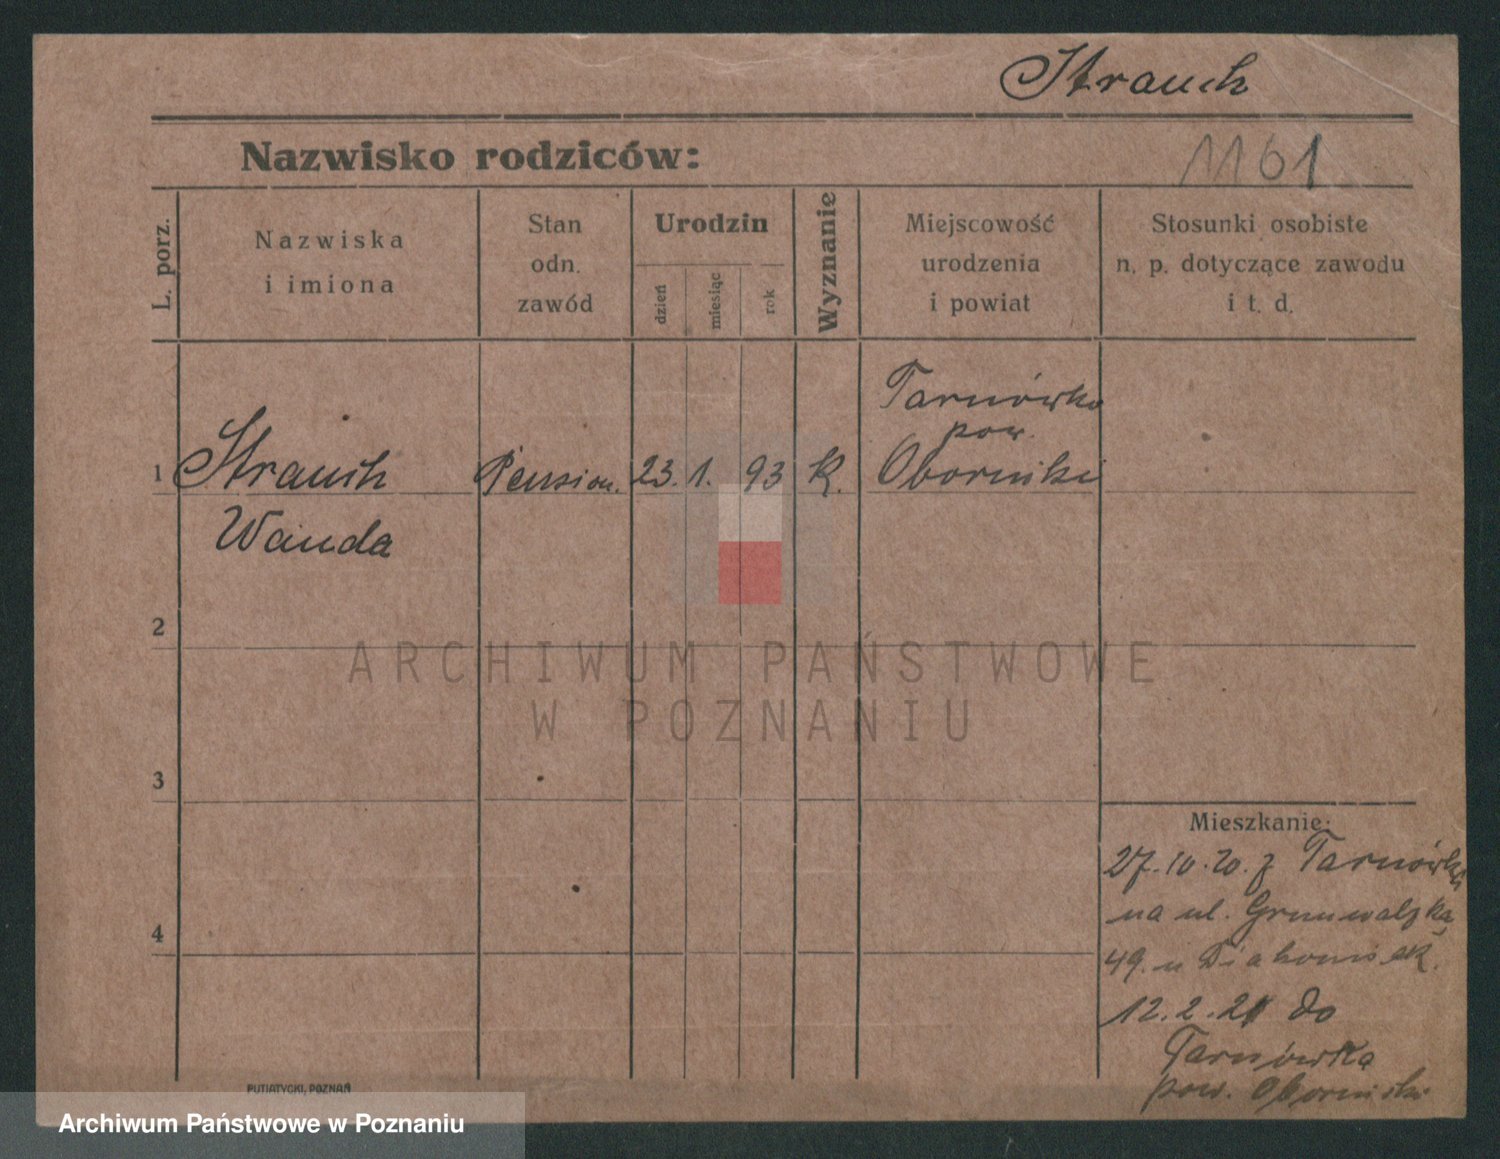 Strauch
Nazwisko rodziców:
1161
L. porz.
Nazwiska
i imiona
Stan
odn.
zawód
Urodzin
dzień
miesiąc
rok
Wyznanie
Miejscowość
urodzenia
i powiat
Stosunki osobiste
n. p. dotyczące zawodu
i t. d.
1 Strauch Pension. 23. 1. 93 K. Tarnówko
pow.
Oborniki
Wanda
2
3
4
ARCHIWUM PAŃSTWOWE
W POZNANIU
Mieszkanie:
27.10.20. z Tarnówka
na ul. Grunwalzką
49. u Diakonisek.
12.2.21 do
Tarnówka
pow. Oborniki
PUTIATYCKI, POZNAŃ
Archiwum Państwowe w Poznaniu